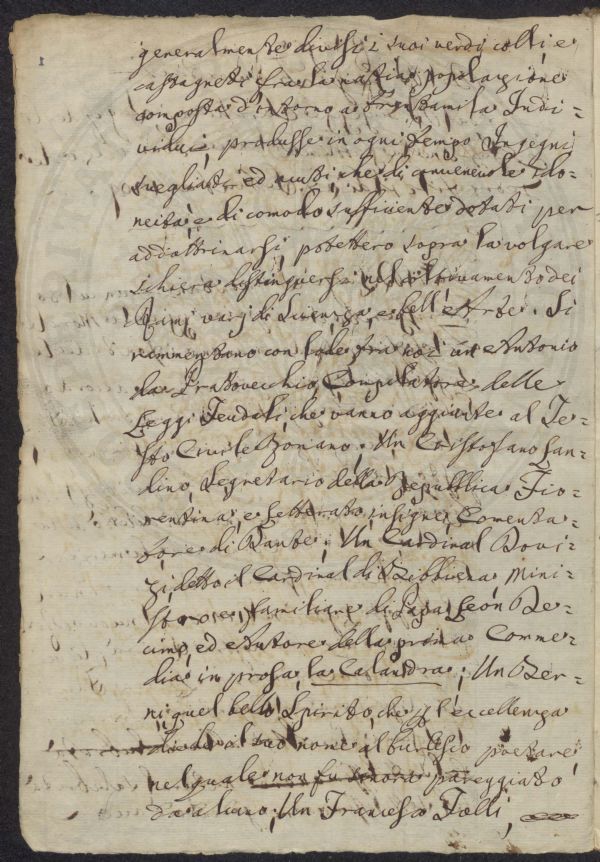 1
generalmente diversi i suoi verdi colti, e
castagneti fra la nativa popolazione
composta d'intorno a Indi=
vidui, produsse in ogni tempo Ingegni
svegliati, ed acuti, che di convenevole Ido=
neità, e di comodo sufficiente dotati per
addottrinarsi, potettero sopra la volgare
schiera distinguersi nel coltivamento dei
Rami varj di Scienza, e dell'Arte. Si
rammentano con lode fra noi un Antonio
da Pratovecchio, Compilatore delle
Leggi Feudali, che vanno aggiunte al Te=
sto Civile Romano. Un Cristofano Lan=
dino, Segretario della Repubblica Fio=
rentina, e Letterato insigne, Comenta=
tore di Dante; Un Cardinal Dovi=
zi detto il Cardinal di Bibbiena, Mini=
stro, e familiare di Papa Leon De=
cimo, ed Autore della prima Comme=
dia in prosa, la Calandra; Un Ber=
ni quel bello Spirito, che p l'eccellenza
diede il suo nome al burlesco poetare,
nel quale non fu sinora pareggiato
da alcuno; Un Francesco Folli,